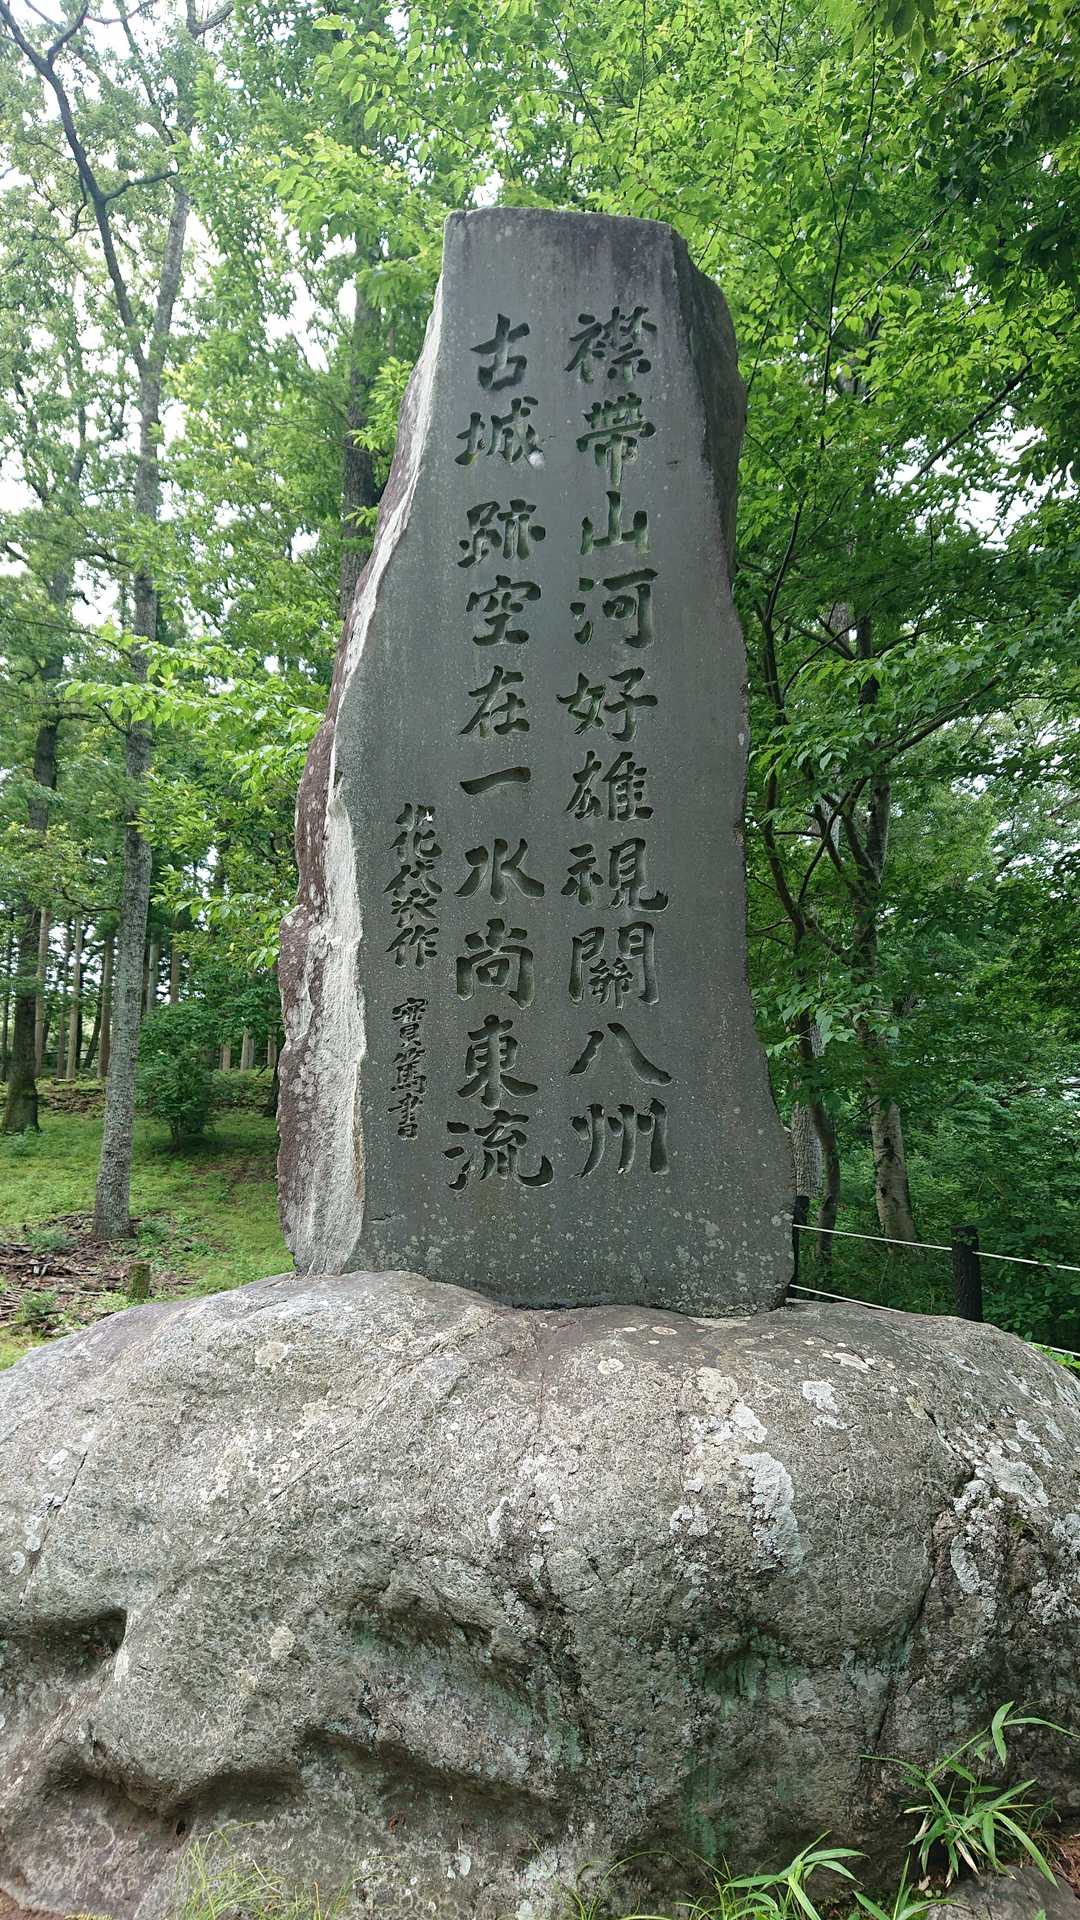 襟帶山河好雄視關八州
古城跡空在一水尚東流
花袋作
實篤書